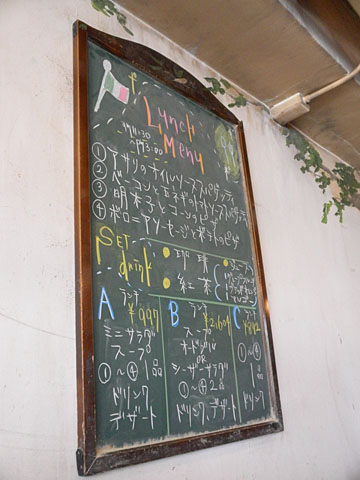 Lunch
Menu
AM11:30
~PM3:00
① アサリのオイルソーススパゲッティ
② ベーコンと玉ネギのトマトソーススパゲッティ
③ 明太子とコーンのピザ
④ ボロニアソーセージとポテトのピザ
SET
drink
珈琲
紅茶
A
ランチ
¥997
ミニサラダ
スープ
①~④1品
ドリンク
デザート
B
ランチ
スープ
OR
シーザーサラダ
①~④2品
ドリンク、デザート
C
ランチ
①~④
1品
ドリンク